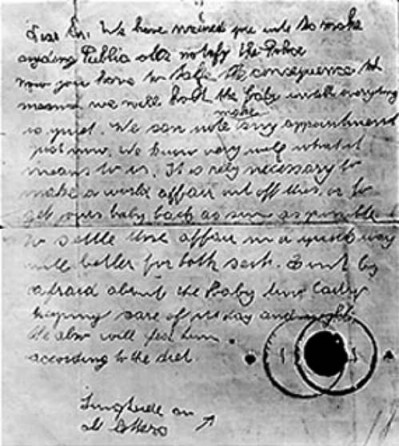 Dear Sir. We have warned you note to make
anyding Public also notify the Police
now you have to take the consequence
means we will hold the baby untill everyding
is quiet. We can note make any appointment
just now. We know very well what it
means to us. It is rely necessary to
make a world affair out off this, or to
get your baby back as sun as possible
to settle those affair in a quick way
will better for both seits. Dont by
afraid about the Baby
keeping care of us day and night.
We also will feed him
according to the diet.
Singnature on
all letters